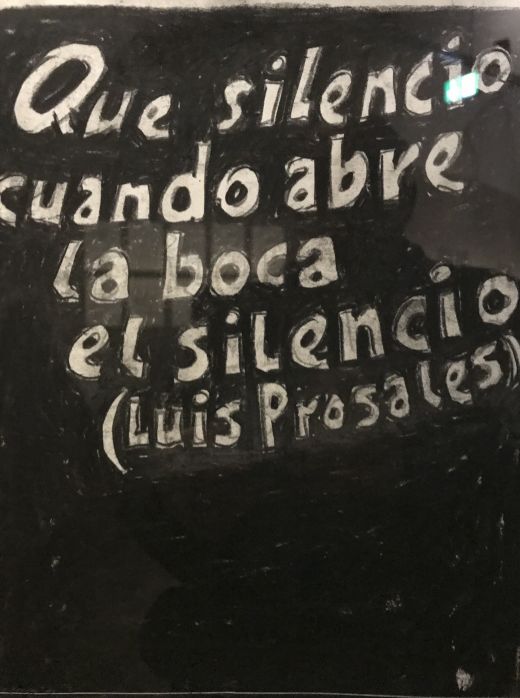 Que silencio
cuando abre
la boca
el silencio
(Luis Prosales)